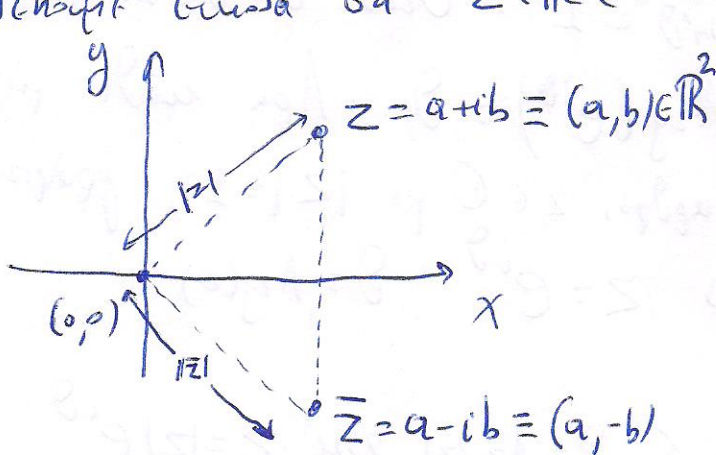 y
z = a+ib ≡ (a,b)∈ℝ²
|z|
(0,0)
x
|z̅|
z̅ = a-ib ≡ (a,-b)